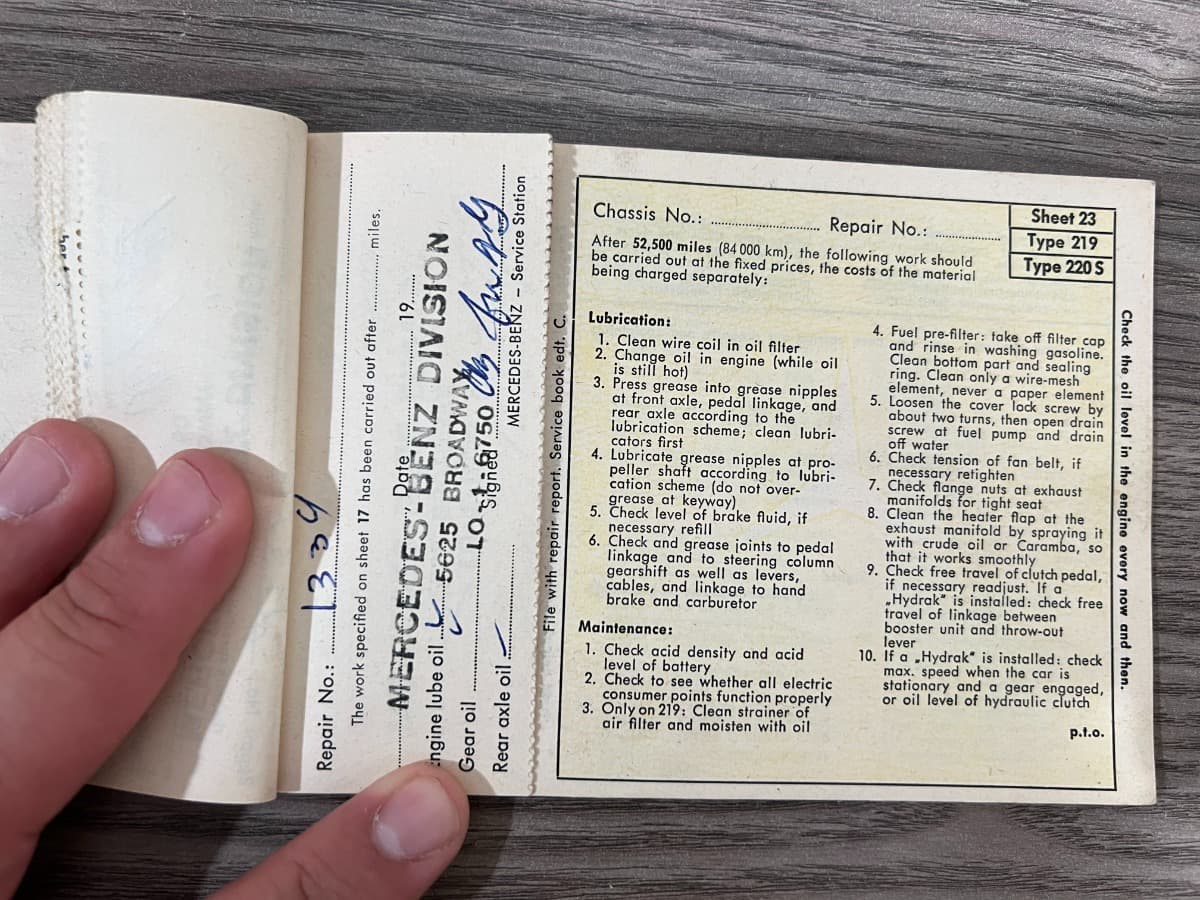 Repair No.: 1334
The work specified on sheet 17 has been carried out after ........ miles.
Date ........ 19 ....
MERCEDES-BENZ DIVISION
ngine lube oil 5625 BROADWAY
Gear oil LO 1-6750
Rear axle oil Signed
MERCEDES-BENZ – Service Station
File with repair report. Service book edt. C.
Chassis No.: ........ Repair No.: ........
Sheet 23
Type 219
Type 220 S
After 52,500 miles (84 000 km), the following work should
be carried out at the fixed prices, the costs of the material
being charged separately:
Lubrication:
1. Clean wire coil in oil filter
2. Change oil in engine (while oil
is still hot)
3. Press grease into grease nipples
at front axle, pedal linkage, and
rear axle according to the
lubrication scheme; clean lubri-
cators first
4. Lubricate grease nipples at pro-
peller shaft according to lubri-
cation scheme (do not over-
grease at keyway)
5. Check level of brake fluid, if
necessary refill
6. Check and grease joints to pedal
linkage and to steering column
gearshift as well as levers,
cables, and linkage to hand
brake and carburetor
Maintenance:
1. Check acid density and acid
level of battery
2. Check to see whether all electric
consumer points function properly
3. Only on 219: Clean strainer of
air filter and moisten with oil
4. Fuel pre-filter: take off filter cap
and rinse in washing gasoline.
Clean bottom part and sealing
ring. Clean only a wire-mesh
element, never a paper element
5. Loosen the cover lock screw by
about two turns, then open drain
screw at fuel pump and drain
off water
6. Check tension of fan belt, if
necessary retighten
7. Check flange nuts at exhaust
manifolds for tight seat
8. Clean the heater flap at the
exhaust manifold by spraying it
with crude oil or Caramba, so
that it works smoothly
9. Check free travel of clutch pedal,
if necessary readjust. If a
„Hydrak“ is installed: check free
travel of linkage between
booster unit and throw-out
lever
10. If a „Hydrak“ is installed: check
max. speed when the car is
stationary and a gear engaged,
or oil level of hydraulic clutch
p.t.o.
Check the oil level in the engine every now and then.